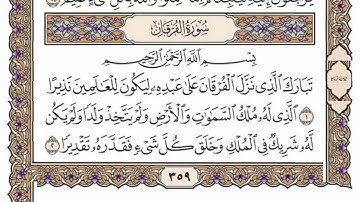 سُورَةُ الفُرْقَانِ
بِسْمِ ٱللَّهِ ٱلرَّحْمَٰنِ ٱلرَّحِيمِ
تَبَارَكَ ٱلَّذِى نَزَّلَ ٱلْفُرْقَانَ عَلَىٰ عَبْدِهِۦ لِيَكُونَ لِلْعَٰلَمِينَ نَذِيرًا
١ ٱلَّذِى لَهُۥ مُلْكُ ٱلسَّمَٰوَٰتِ وَٱلْأَرْضِ وَلَمْ يَتَّخِذْ وَلَدًا وَلَمْ يَكُن
لَّهُۥ شَرِيكٌ فِى ٱلْمُلْكِ وَخَلَقَ كُلَّ شَىْءٍ فَقَدَّرَهُۥ تَقْدِيرًا ٢
٣٥٩